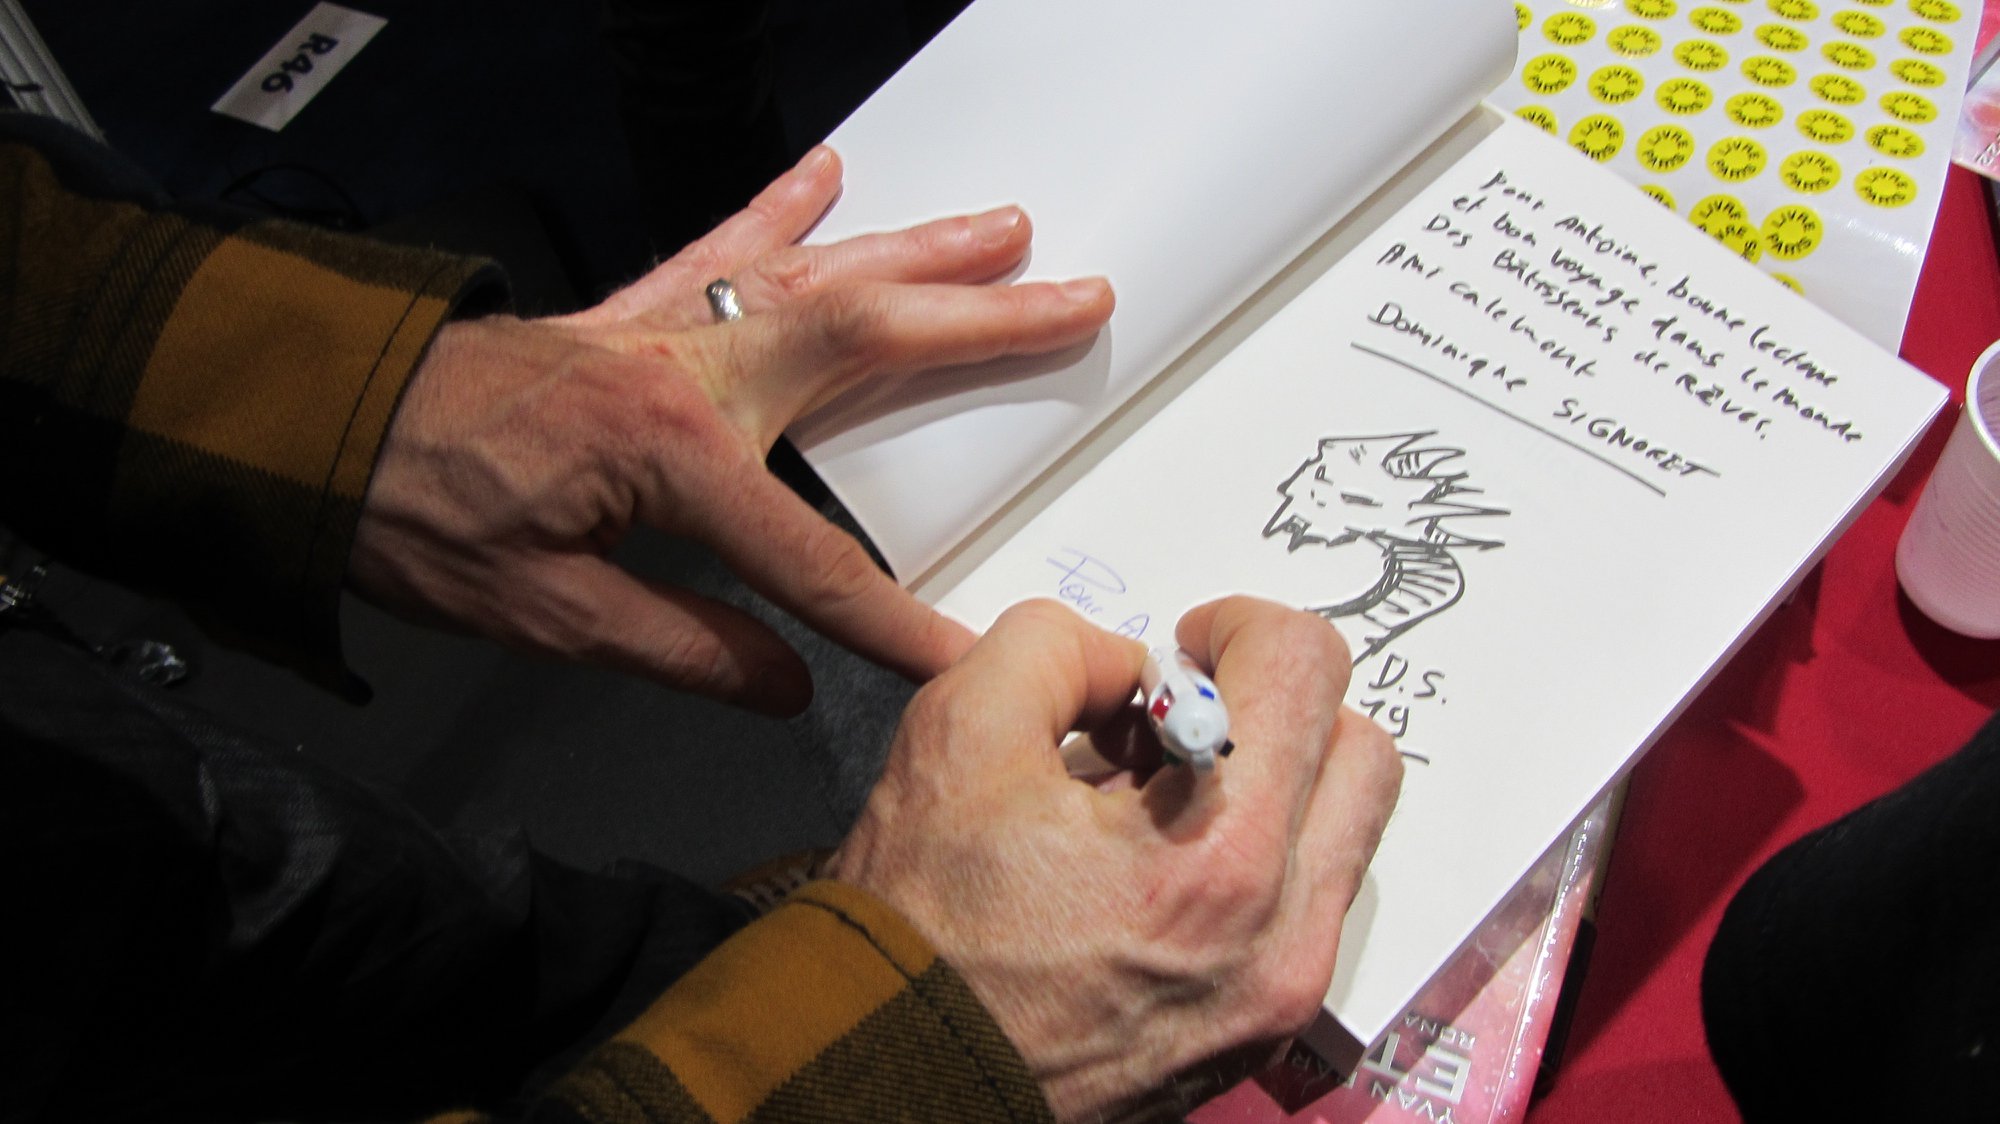 R46
Pour Antoine, bonne lecture
et bon voyage dans le monde
Des Bâtisseurs de Rêves.
Amicalement
Dominique SIGNORET
Pour A
D.S.
19
LIVRE
PARIS
YVAN
ET
RONA